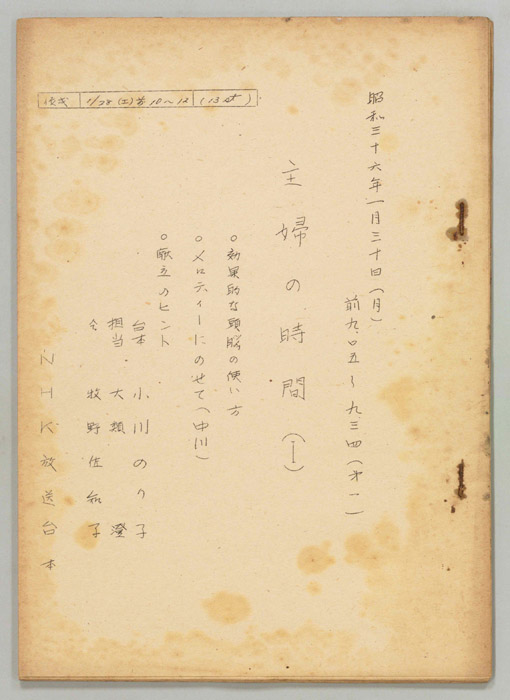 昭和三十六年一月三十日(月)
前九.〇五〜九.三四(才一)
主婦の時間(I)
○効果的な頭脳の使い方
○メロディーにのせて(中川)
○献立のヒント
台本 小川のり子
担当 大類 澄
仝 牧野佐知子
NHK放送台本
1/28(土)前10〜12 (13st)